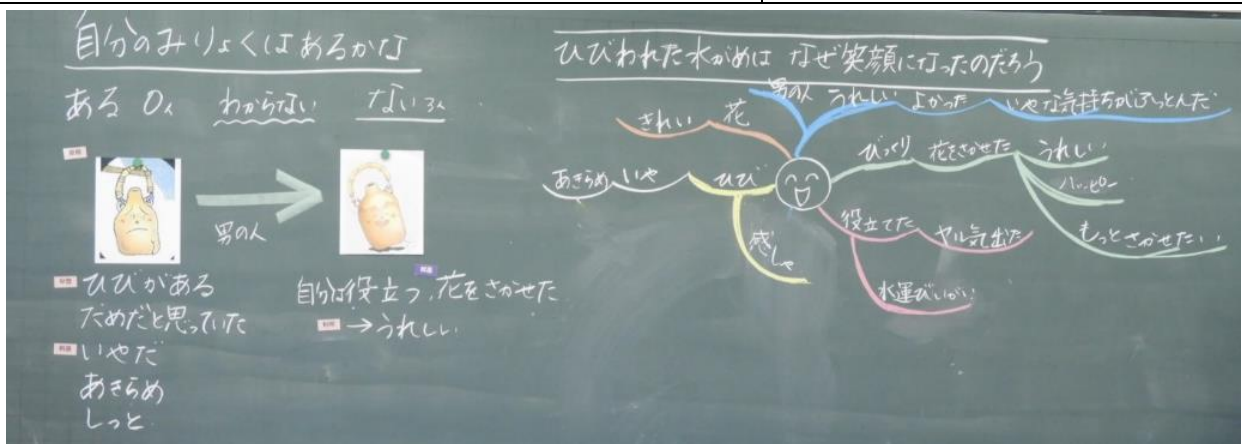 自分のみりょくはあるかな
ある 0人 わからない ない 3人
男の人
ひびがある
だめだと思っていた
いやだ
あきらめ
しっと
自分は役立つ、花をさかせた
→うれしい
ひびわれた水がめは なぜ笑顔になったのだろう
男の人 うれしい よかった いやな気持ちがふっとんだ
きれい 花
びっくり 花をさかせた うれしい
ハッピー
もっとさかせたい
あきらめ いや ひび
感しゃ
役立てた ヤル気出た
水運びいがい